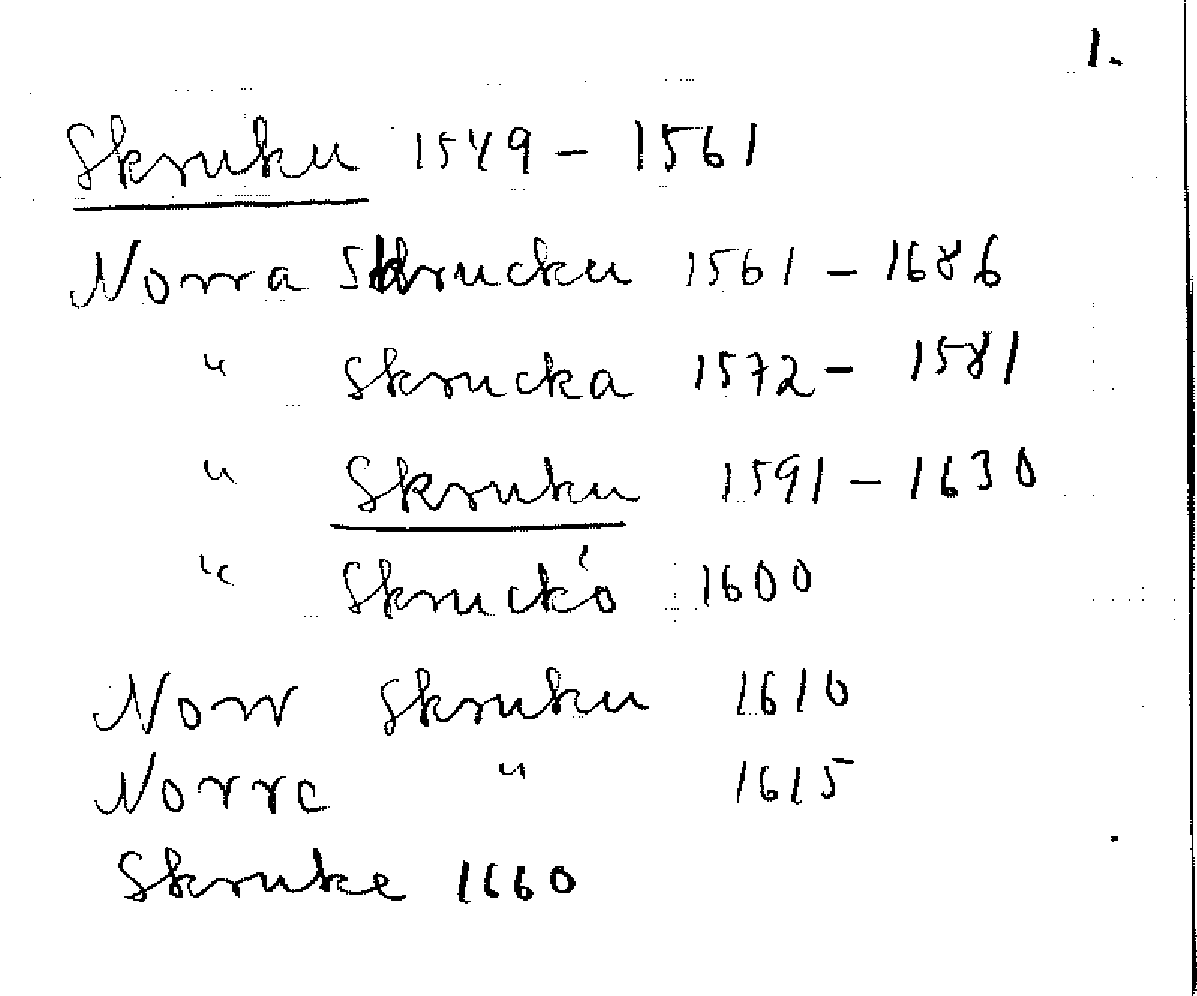 1.
Skruku 1549 - 1561
Norra Skrucku 1561 - 1686
" Skrucka 1572 - 1581
" Skruku 1591 - 1630
" Skruckó 1600
Norr Skruku 1610
Norre " 1615
Skruke 1660